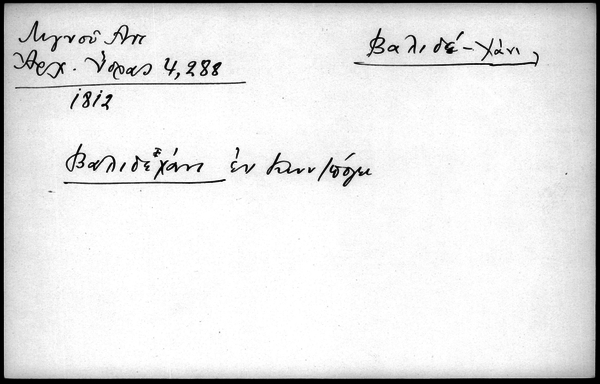 Λιγνού Αντ
Ἀρχ. Ὕδρας 4,288
1812
Βαλιδέ-χάνι,
Βαλιδὲ χάνι ἐν Κων/πόλει